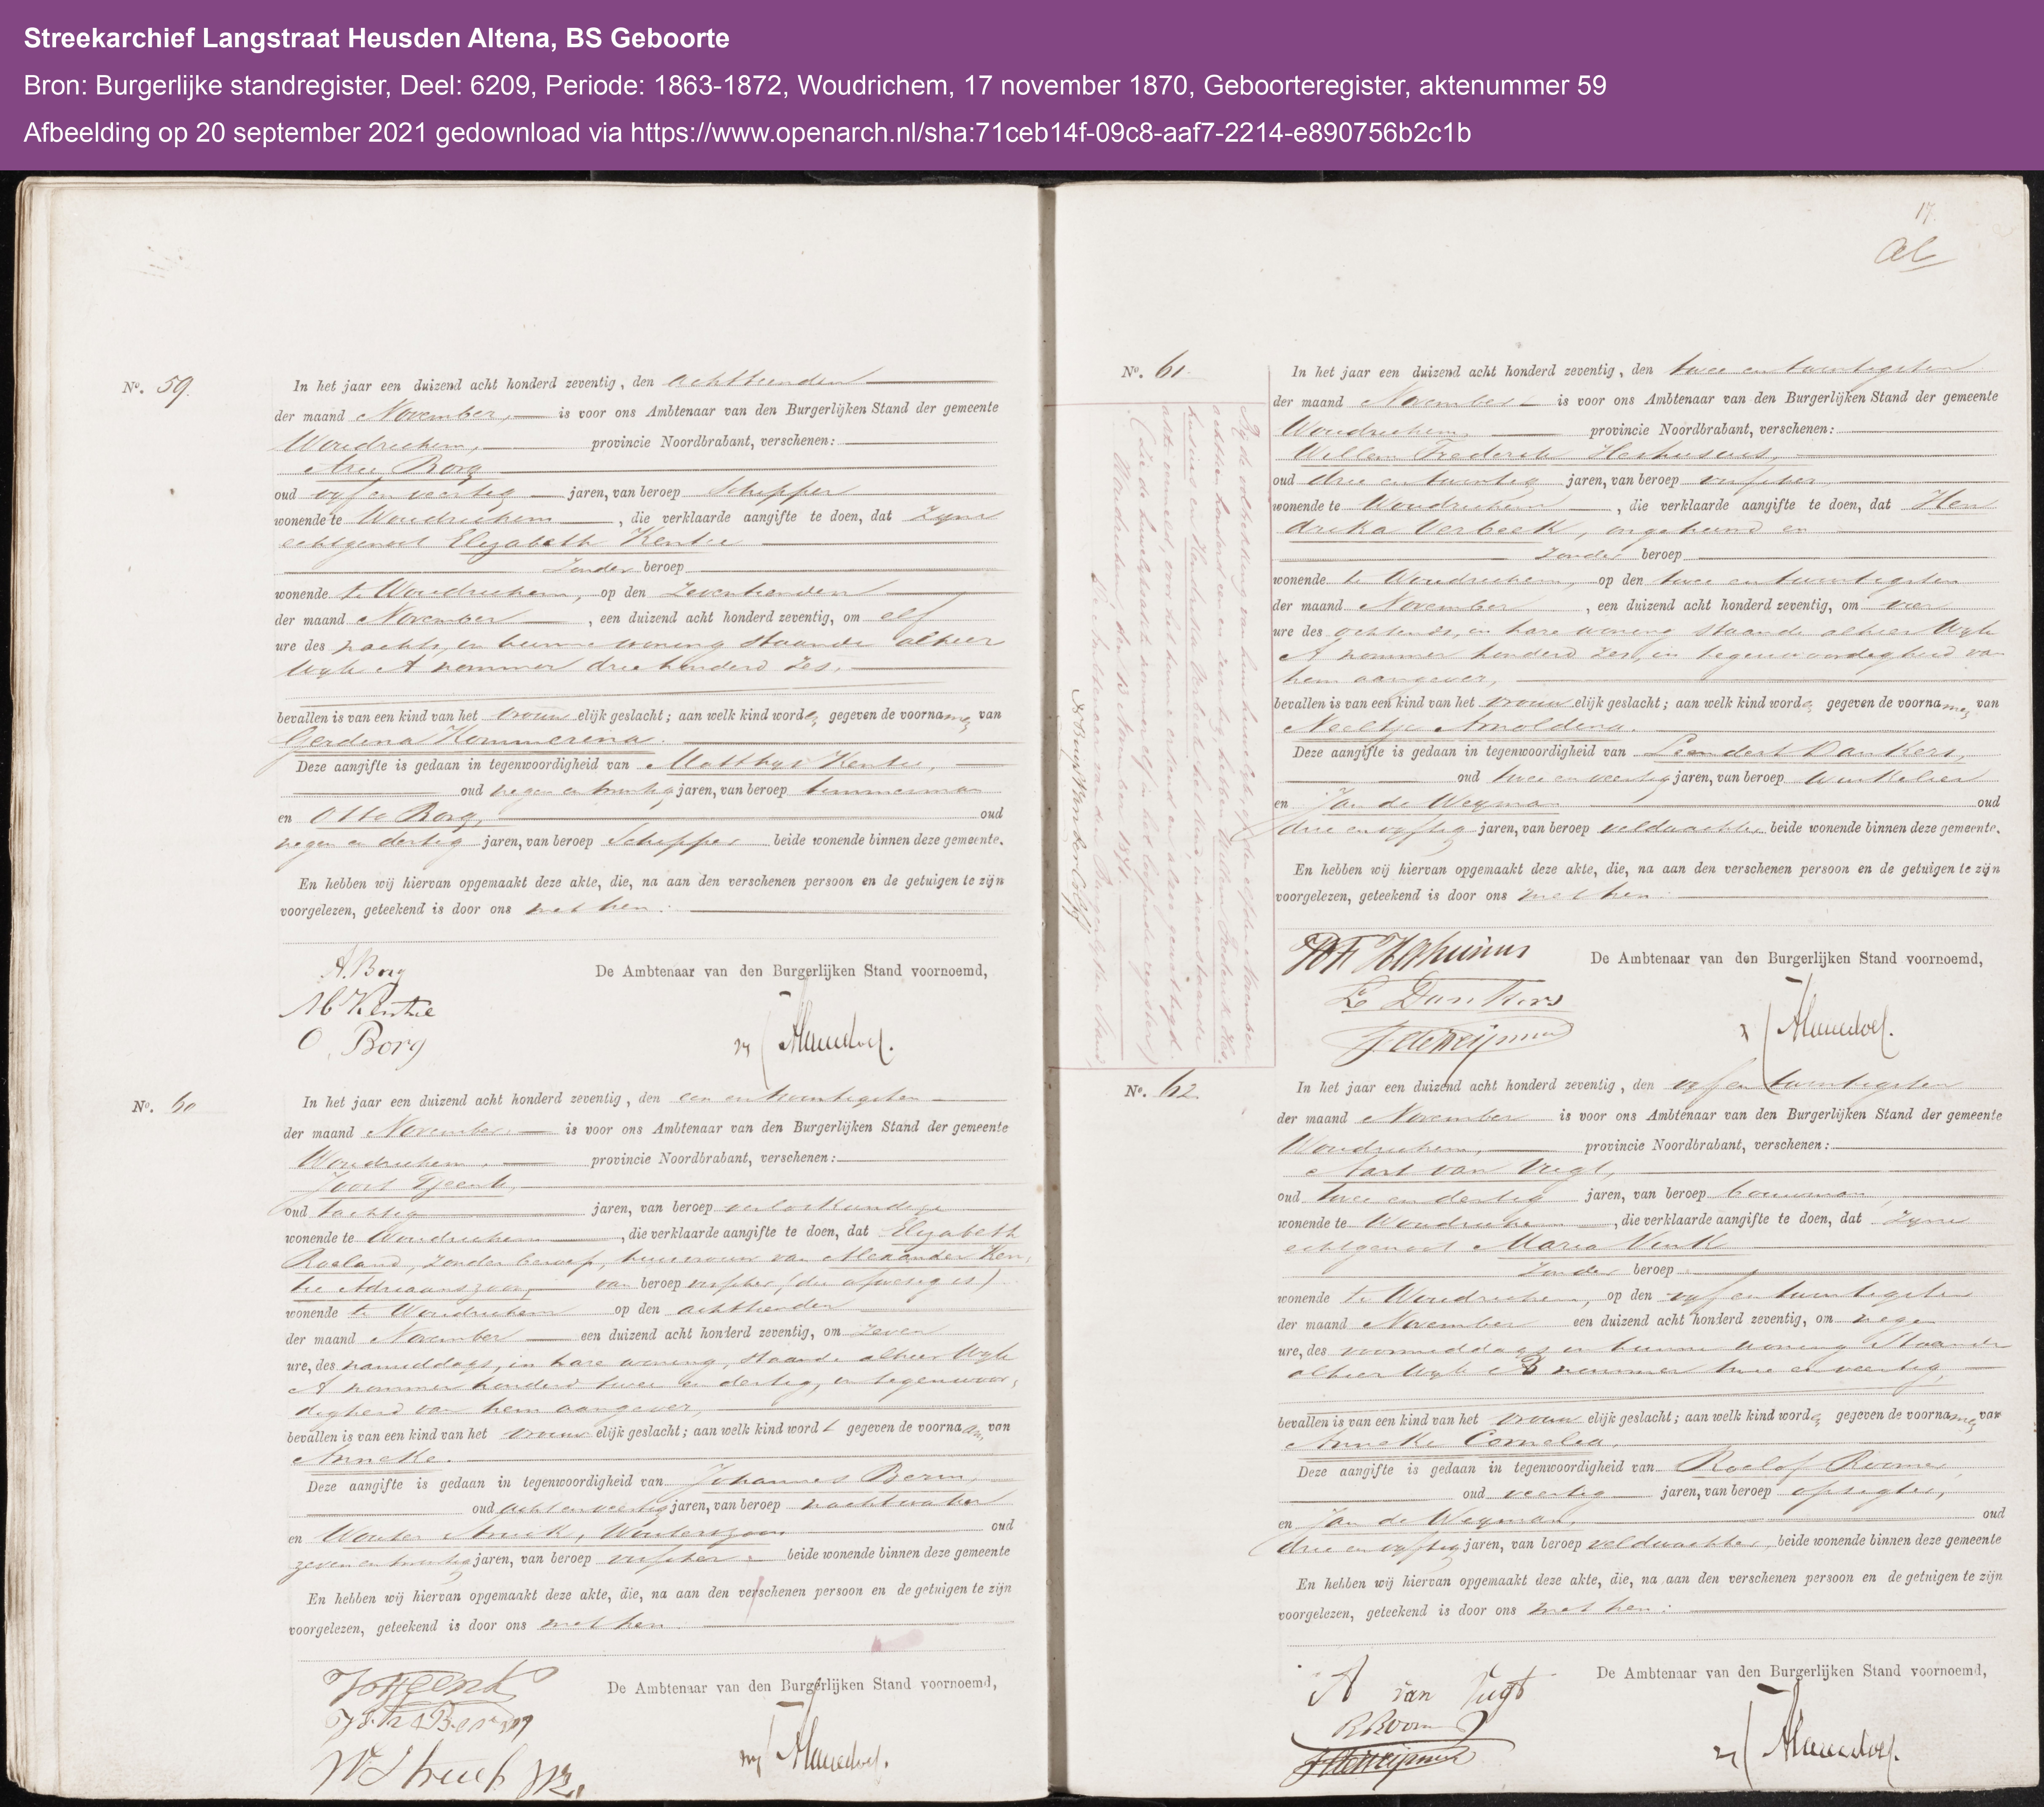 Streekarchief Langstraat Heusden Altena, BS Geboorte
Bron: Burgerlijke standregister, Deel: 6209, Periode: 1863-1872, Woudrichem, 17 november 1870, Geboorteregister, aktenummer 59
Afbeelding op 20 september 2021 gedownload via https://www.openarch.nl/sha:71ceb14f-09c8-aaf7-2214-e890756b2c1b
No. 59.
In het jaar een duizend acht honderd zeventig, den achttienden
der maand November, is voor ons Ambtenaar van den Burgerlijken Stand der gemeente
Woudrichem, provincie Noordbrabant, verschenen:
Arie Borg
oud vyf en veertig jaren, van beroep Schipper
wonende te Woudrichem, die verklaarde aangifte te doen, dat zyne
echtgenoot Elizabeth Kentie
zonder beroep
wonende te Woudrichem, op den zeventienden
der maand November, een duizend acht honderd zeventig, om elf
ure des nachts, in hunne woning staande alhier
Wyk A nommer drie honderd zes,
bevallen is van een kind van het vrouwelijk geslacht; aan welk kind worden gegeven de voornamen van
Gerdina Kommerina.
Deze aangifte is gedaan in tegenwoordigheid van Matthys Kentie,
oud negen en twintig jaren, van beroep timmerman
en Otto Borg, oud
negen en dertig jaren, van beroep Schipper beide wonende binnen deze gemeente.
En hebben wij hiervan opgemaakt deze akte, die, na aan den verschenen persoon en de getuigen te zijn
voorgelezen, geteekend is door ons met hen.
A. Borg
De Ambtenaar van den Burgerlijken Stand voornoemd,
M Kentie
O. Borg
No. 60
In het jaar een duizend acht honderd zeventig, den een en twintigsten
der maand November, is voor ons Ambtenaar van den Burgerlijken Stand der gemeente
Woudrichem, provincie Noordbrabant, verschenen:
Joost Tjeenk,
oud tachtig jaren, van beroep verloskundige
wonende te Woudrichem, die verklaarde aangifte te doen, dat Elizabeth
Roeland, zonder beroep, huisvrouw van Alexander Ken,
tie Adriaanszoon, van beroep visscher, (die afwezig is)
wonende te Woudrichem op den achttienden
der maand November een duizend acht honderd zeventig, om zeven
ure, des namiddags, in hare woning, staande alhier Wyk
A nommer honderd twee en dertig, in tegenwoor,
digheid van hem aangever,
bevallen is van een kind van het vrouwelijk geslacht; aan welk kind wordt gegeven de voornaam, van
Anneke.
Deze aangifte is gedaan in tegenwoordigheid van Johannes
oud acht en veertig jaren, van beroep nachtwaker
en Wouter Struik, Wouterszoon oud
zeven en twintig jaren, van beroep visscher beide wonende binnen deze gemeente
En hebben wij hiervan opgemaakt deze akte, die, na aan den verschenen persoon en de getuigen te zijn
voorgelezen, geteekend is door ons met hen.
J Tjeenk
De Ambtenaar van den Burgerlijken Stand voornoemd,
17.
No. 61.
In het jaar een duizend acht honderd zeventig, den twee en twintigsten
der maand November is voor ons Ambtenaar van den Burgerlijken Stand der gemeente
Woudrichem, provincie Noordbrabant, verschenen:
Willem Frederik
oud drie en twintig jaren, van beroep visscher,
wonende te Woudrichem, die verklaarde aangifte te doen, dat Hen
drika Verbeek, ongehuwd en
zonder beroep
wonende te Woudrichem, op den twee en twintigsten
der maand November, een duizend acht honderd zeventig, om vier
ure des ochtends, in hare woning staande alhier Wyk
A nommer honderd zes, in tegenwoordigheid van
hem aangever,
bevallen is van een kind van het vrouwelijk geslacht; aan welk kind worden gegeven de voornamen van
Neeltje Arnoldina.
Deze aangifte is gedaan in tegenwoordigheid van Leendert Dankers,
oud twee en veertig jaren, van beroep Winkelier
en Jan de Weyman oud
drie en vyftig jaren, van beroep veldwachter beide wonende binnen deze gemeente.
En hebben wij hiervan opgemaakt deze akte, die, na aan den verschenen persoon en de getuigen te zijn
voorgelezen, geteekend is door ons met hen.
De Ambtenaar van den Burgerlijken Stand voornoemd,
L Dankers
No. 62.
In het jaar een duizend acht honderd zeventig, den vyf en twintigsten
der maand November is voor ons Ambtenaar van den Burgerlijken Stand der gemeente
Woudrichem, provincie Noordbrabant, verschenen:
Aart van Vugt,
oud twee en dertig jaren, van beroep bouwman,
wonende te Woudrichem, die verklaarde aangifte te doen, dat zyne
echtgenoot Maria Vink
zonder beroep
wonende te Woudrichem, op den vyf en twintigsten
der maand November een duizend acht honderd zeventig, om negen
ure, des voormiddags in hunne woning staande
alhier Wyk B nommer twee en veertig,
bevallen is van een kind van het vrouwelijk geslacht; aan welk kind worden gegeven de voornamen van
Anneke Cornelia.
Deze aangifte is gedaan in tegenwoordigheid van Roelof
oud veertig jaren, van beroep opzigter,
en Jan de Weyman, oud
drie en vyftig jaren, van beroep veldwachter, beide wonende binnen deze gemeente
En hebben wij hiervan opgemaakt deze akte, die, na aan den verschenen persoon en de getuigen te zijn
voorgelezen, geteekend is door ons met hen.
De Ambtenaar van den Burgerlijken Stand voornoemd,
A van Vugt